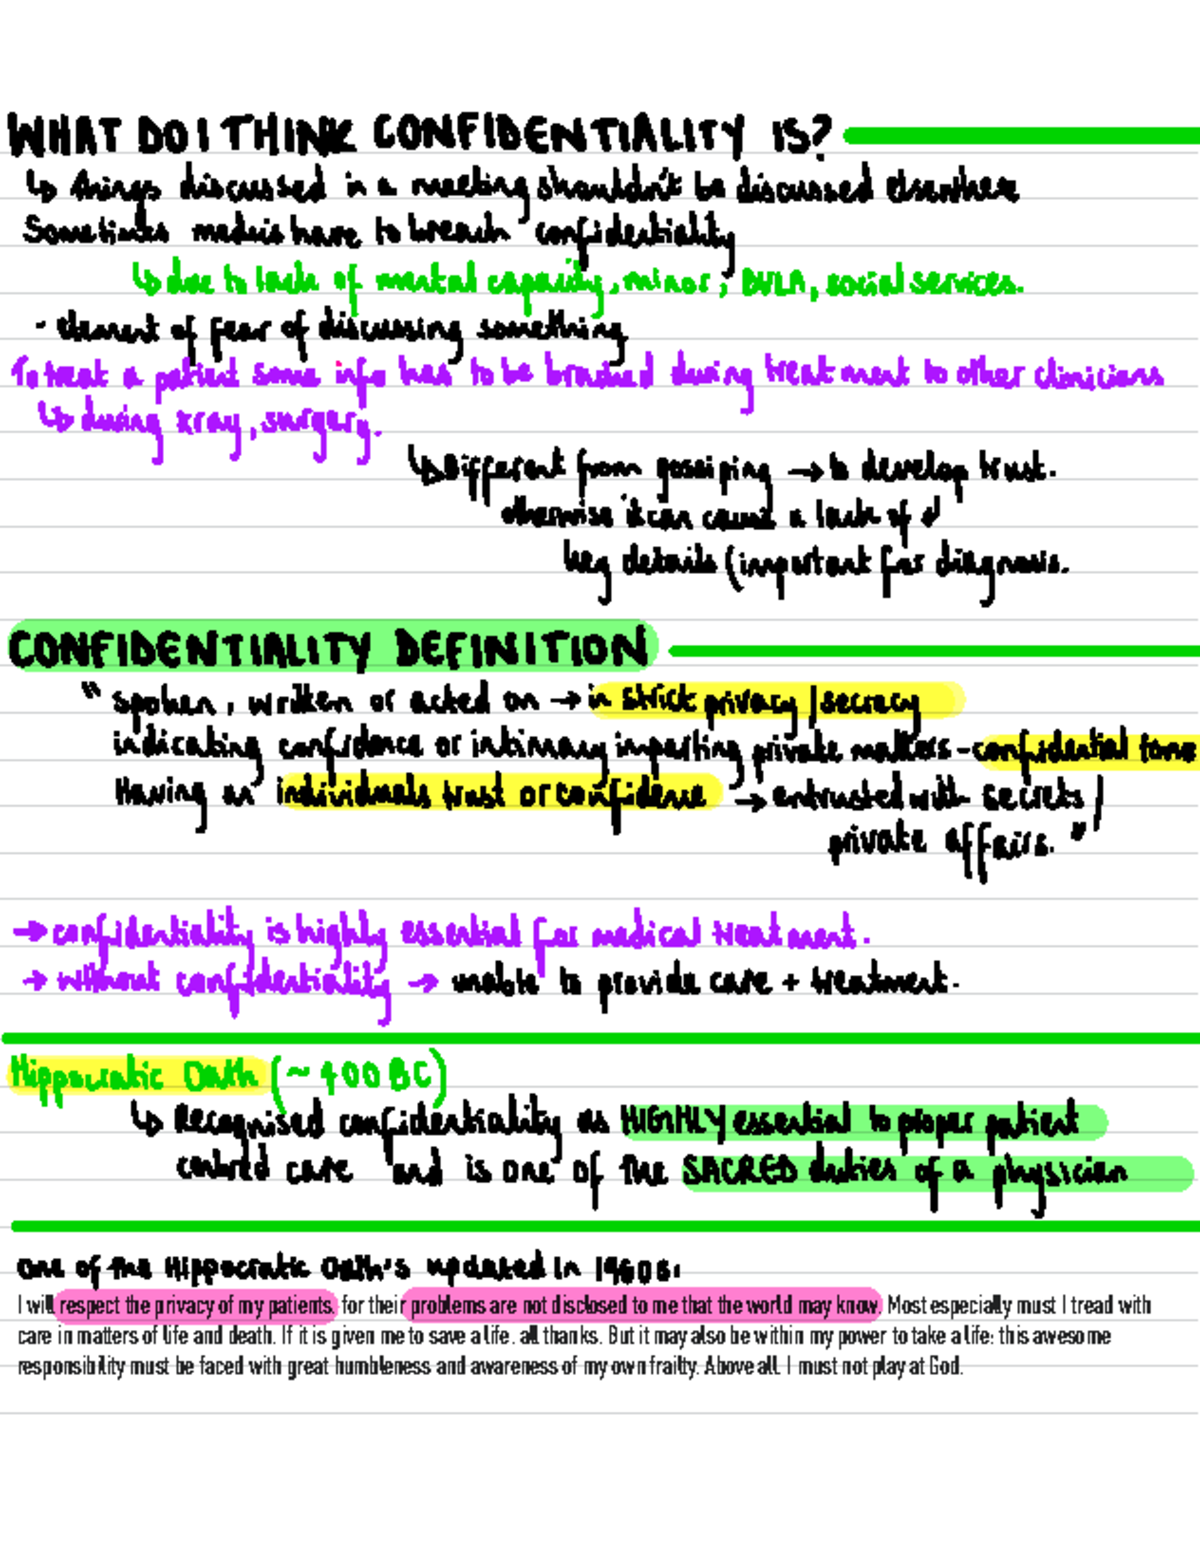 WHAT DO I THINK CONFIDENTIALITY IS?
↳ things discussed in a meeting shouldn't be discussed elsewhere
Sometimes medics have to breach confidentiality
↳ due to lack of mental capacity, minor, DVLA, social services.
- element of fear of discussing something
To treat a patient some info has to be breached during treatment to other clinicians
↳ during xray, surgery.
↳ Different from gossiping → to develop trust.
otherwise it can cause a lack of
key details (important for diagnosis.
CONFIDENTIALITY DEFINITION
" spoken, written or acted on → in strict privacy / secrecy
indicating confidence or intimacy imparting private matters - confidential tone
Having an individuals trust or confidence → entrusted with secrets /
private affairs. "
→ confidentiality is highly essential for medical treatment.
→ without confidentiality → unable to provide care + treatment.
Hippocratic Oath (~ 400 BC)
↳ Recognised confidentiality as HIGHLY essential to proper patient
centred care and is one of the SACRED duties of a physician
One of the Hippocratic Oath's updated in 1960s:
I will respect the privacy of my patients, for their problems are not disclosed to me that the world may know. Most especially must I tread with
care in matters of life and death. If it is given me to save a life, all thanks. But it may also be within my power to take a life: this awesome
responsibility must be faced with great humbleness and awareness of my own frailty. Above all, I must not play at God.